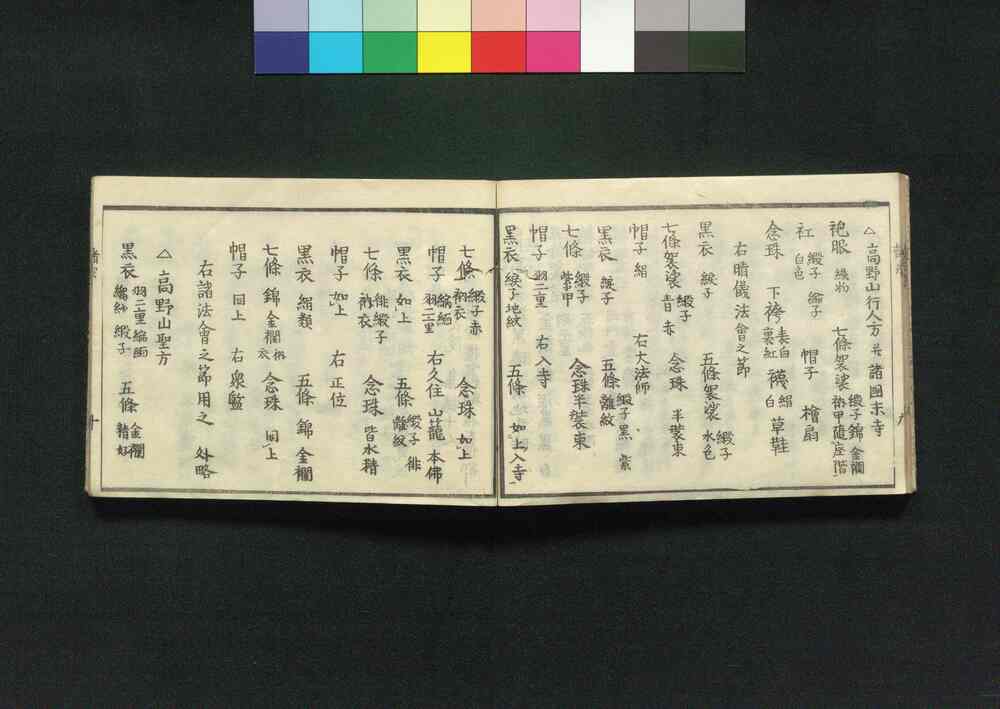 △高野山行人方并諸國末寺
袍眼 織物 七條袈裟 緞子錦金襴 衲甲随座階
緞子 綸子 帽子 檜扇
念珠 下袴 表白 裏紅 襪 絹 白 草鞋
右晴儀法會之節
黒衣 綟子 五條袈裟 緞子 水色
七條袈裟 緞子 青赤 念珠 半裝束
帽子 絹 右大法師
黒衣 綟子 五條 緞子黒紫 離紋
七條 緞子 紫甲 念珠半裝束
帽子 羽二重 右入寺
黒衣 綟子地紋 五條 如上入寺
七條 緞子赤 衲衣 念珠 如上
帽子 縮緬 羽二重 右久住 山籠 本佛
黒衣 如上 五條 緞子 緋 離紋
七條 緋緞子 衲衣 念珠 皆水精
帽子 如上 右正位
黒衣 絹類 五條 錦 金襴
七條 錦 金襴 衲衣 念珠 同上
帽子 同上 右衆監
右諸法會之節用之 外略
△高野山聖方
黒衣 羽二重 縮緬 綸子 緞子 五條 金襴 精好
十